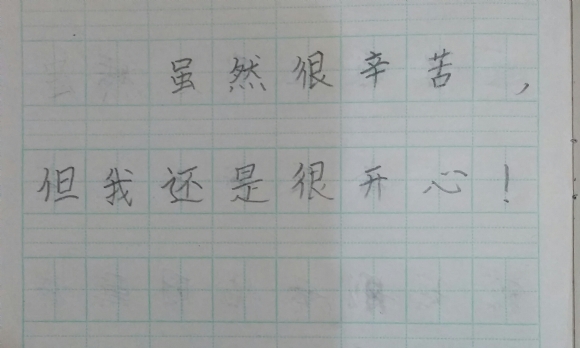 虽然很辛苦，
但我还是很开心！